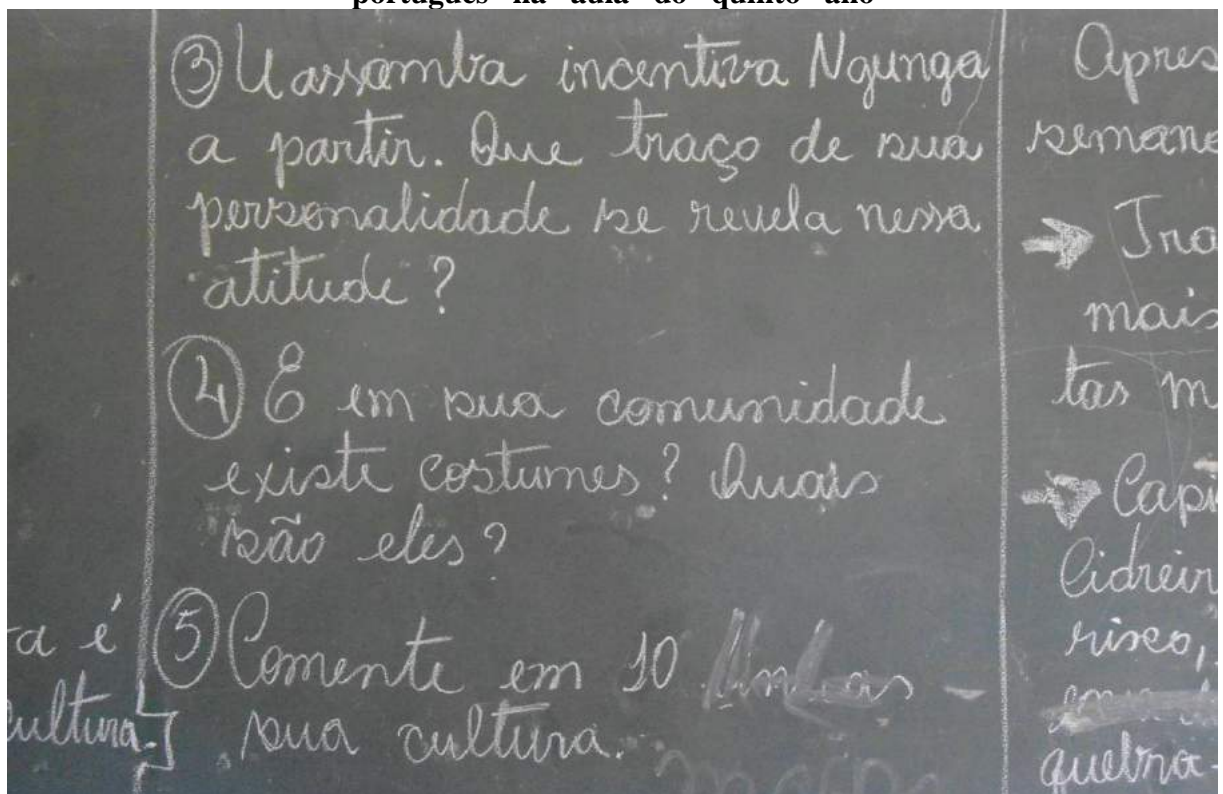 português na aula do quinto ano
③ Uassamba incentiva Ngunga
a partir. Que traço de sua
personalidade se revela nessa
atitude?
④ E em sua comunidade
existe costumes? Quais
são eles?
⑤ Comente em 10 linhas
sua cultura.
a é
cultura.
Apres
semana
Tra
mais
tas m
Capi
Cidreir
risco,
quebra-